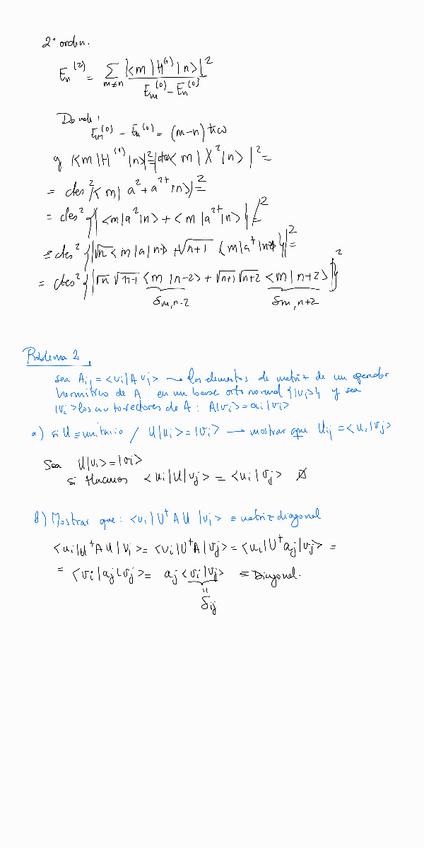 2º orden.
E_n^(2) = Σ_{m≠n} |<m|H^(1)|n>|^2 / E_m^(0) - E_n^(0)
Donde:
E_m^(0) - E_n^(0) = (m-n) ħω
y |<m|H^(1)|n>|^2 = |ctes <m|X^2|n>|^2 =
= ctes^2 |<m|a^2 + a^{2+}|n>|^2 =
= ctes^2 {|<m|a^2|n> + <m|a^{2+}|n>}|^2 =
= ctes^2 {|√n <m|a|n-1> + √n+1 <m|a^+|n+1>}|^2 =
= ctes^2 {|√n √n-1 <m|n-2> + √n+1 √n+2 <m|n+2>|}^2
δm,n-2 δm,n+2
Problema 2
sea A_ij = <u_i|A u_j> → los elementos de matriz de un operador
hermítico de A en una base ortonormal {|u_i>} y sea
|v_i> los autovectores de A : A|v_i> = a_i|v_i>
a) si U ≡ unitario / U|u_i> = |v_i> → mostrar que U_ij = <u_i|v_j>
Sea U|u_i> = |v_i>
si Hacemos <u_i|U|u_j> = <u_i|v_j>
b) Mostrar que: <u_i|U^†AU|u_j> ≡ matriz diagonal
<u_i|U^†AU|u_j> = <u_i|U^†A|v_j> = <u_i|U^† a_j|v_j> =
= <v_i|a_j|v_j> = a_j <v_i|v_j> ≡ Diagonal.
"
δij